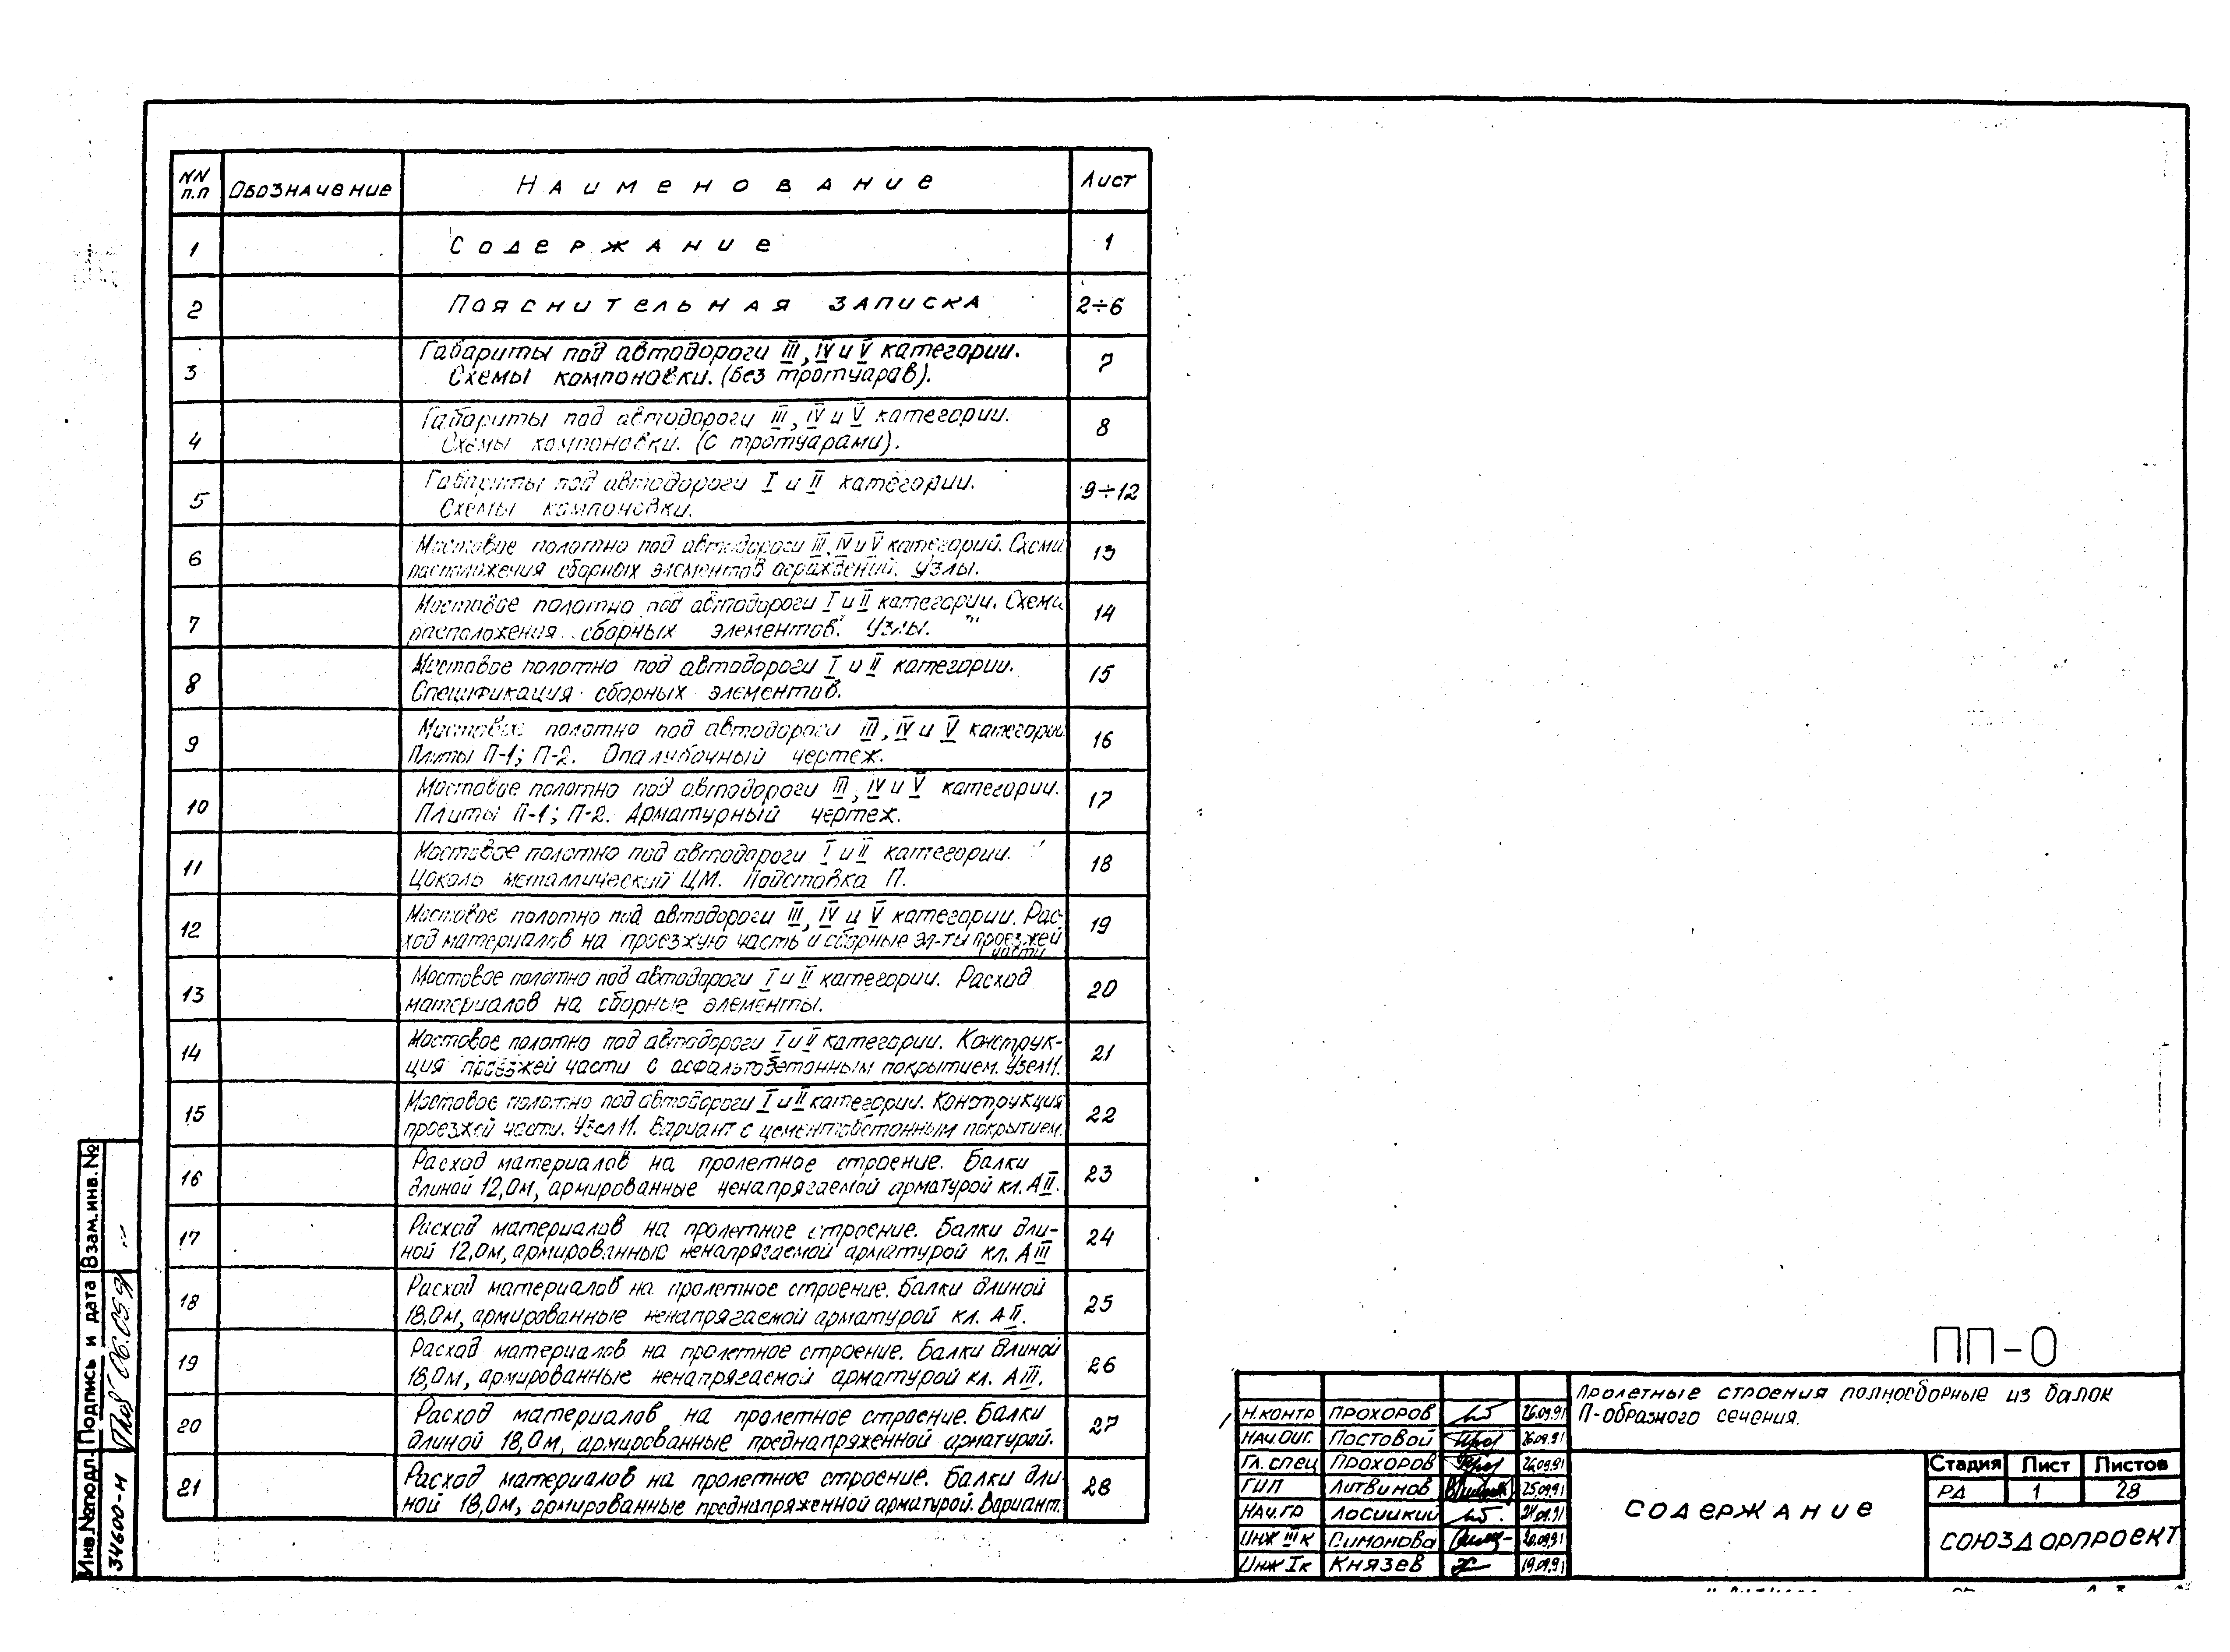 NN п.п Обозначение Наименование Лист
1 Содержание 1
2 Пояснительная записка 2÷6
3 Габариты под автодороги III, IV и V категории. 7
Схемы компоновки. (без тротуаров).
4 Габариты под автодороги III, IV и V категории. 8
Схемы компоновки. (с тротуарами).
5 Габариты под автодороги I и II категории. 9÷12
Схемы компоновки.
6 Мостовое полотно под автодороги III, IV и V категорий. Схема 13
расположения сборных элементов ограждений. Узлы.
7 Мостовое полотно под автодороги I и II категории. Схема 14
расположения сборных элементов. Узлы.
8 Мостовое полотно под автодороги I и II категории. 15
Спецификация сборных элементов.
9 Мостовое полотно под автодороги III, IV и V категории 16
Плиты П-1; П-2. Опалубочный чертеж.
10 Мостовое полотно под автодороги III, IV и V категории. 17
Плиты П-1; П-2. Арматурный чертеж.
11 Мостовое полотно под автодороги I и II категории. 18
Цоколь металлический ЦМ. Подстовка П.
12 Мостовое полотно под автодороги III, IV и V категории. Рас- 19
ход материалов на проезжую часть и сборные эл-ты проезжей
части
13 Мостовое полотно под автодороги I и II категории. Расход 20
материалов на сборные элементы.
14 Мостовое полотно под автодороги I и II категории. Конструк- 21
ция проезжей части с асфальтобетонным покрытием. Узел 11.
15 Мостовое полотно под автодороги I и II категории. Конструкция 22
проезжей части. Узел 11. Вариант с цементобетонным покрытием.
16 Расход материалов на пролетное строение. Балки 23
длиной 12,0м, армированные ненапрягаемой арматурой кл. АII.
17 Расход материалов на пролетное строение. Балки дли- 24
ной 12,0м, армированные ненапрягаемой арматурой кл. АIII
18 Расход материалов на пролетное строение. Балки длиной 25
18,0м, армированные ненапрягаемой арматурой кл. АII.
19 Расход материалов на пролетное строение. Балки длиной 26
18,0м, армированные ненапрягаемой арматурой кл. АIII.
20 Расход материалов на пролетное строение. Балки 27
длиной 18,0м, армированные преднапряженной арматурой.
21 Расход материалов на пролетное строение. Балки дли 28
ной 18,0м, армированные преднапряженной арматурой. Вариант.
Инв.№подл. Подпись и дата Взам.инв.№
34600-м 06.05.91
ПП-0
Пролетные строения полносборные из балок
П-образного сечения.
Н.контр Прохоров 26.09.91
Нач.ОИГ. Постовой 26.09.91
Гл. спец Прохоров 26.09.91
ГИП Литвинов 25.09.91
Нач.гр Лосицкий 24.09.91
Инж IIIк Симонова 20.09.91
Инж Iк Князев 19.09.91
Содержание
Стадия Лист Листов
РД 1 28
СОЮЗДОРПРОЕКТ